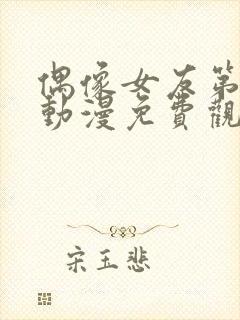 偶像女友第
動漫免費觀
宋玉悲